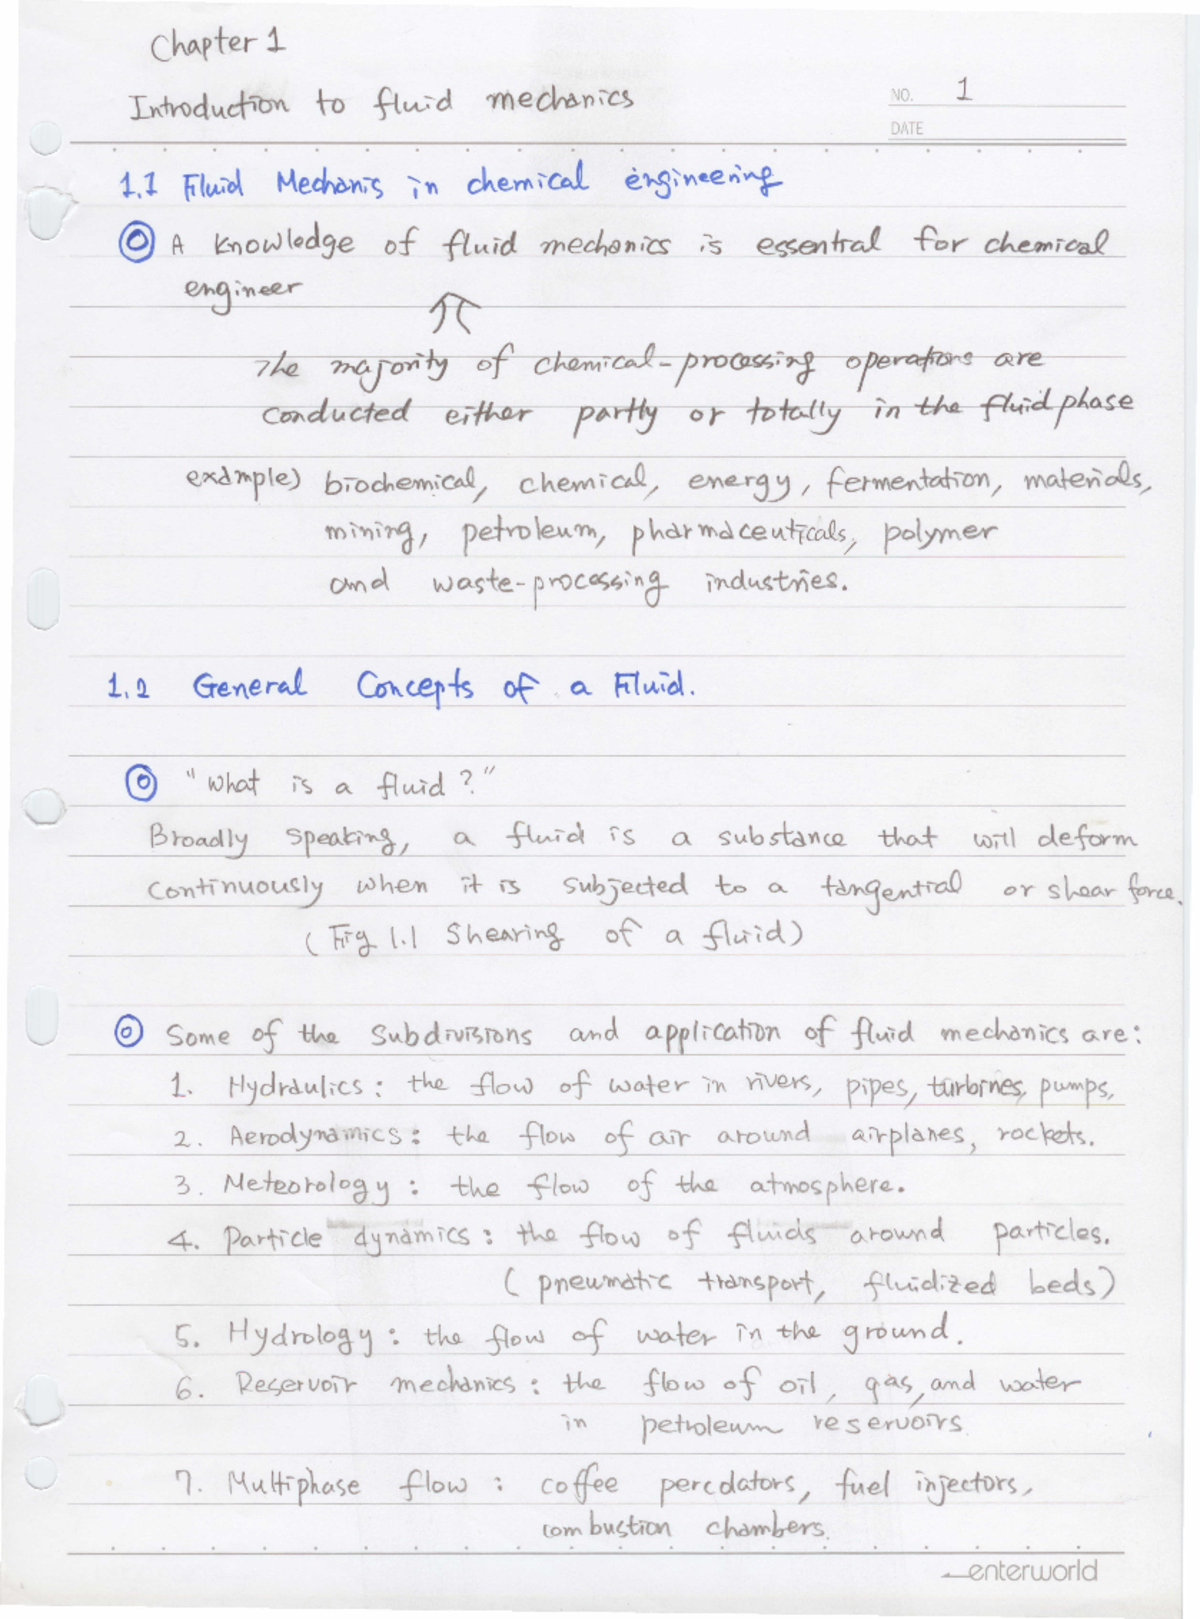 Chapter 1
Introduction to fluid mechanics
NO. 1
DATE
1.1 Fluid Mechanis in chemical engineering
◎ A knowledge of fluid mechanics is essential for chemical
engineer
⇑
The majority of chemical-processing operations are
conducted either partly or totally in the fluid phase
example) biochemical, chemical, energy, fermentation, materials,
mining, petroleum, pharmaceuticals, polymer
and waste-processing industries.
1.2 General Concepts of a Fluid.
◎ "What is a fluid?"
Broadly speaking, a fluid is a substance that will deform
continuously when it is subjected to a tangential or shear force.
(Fig 1.1 Shearing of a fluid)
◎ Some of the subdivisions and application of fluid mechanics are:
1. Hydraulics: the flow of water in rivers, pipes, turbines, pumps,
2. Aerodynamics: the flow of air around airplanes, rockets.
3. Meteorology: the flow of the atmosphere.
4. Particle dynamics: the flow of fluids around particles.
(pneumatic transport, fluidized beds)
5. Hydrology: the flow of water in the ground.
6. Reservoir mechanics: the flow of oil, gas, and water
in petroleum reservoirs
7. Multiphase flow: coffee percolators, fuel injectors,
combustion chambers.
enterworld